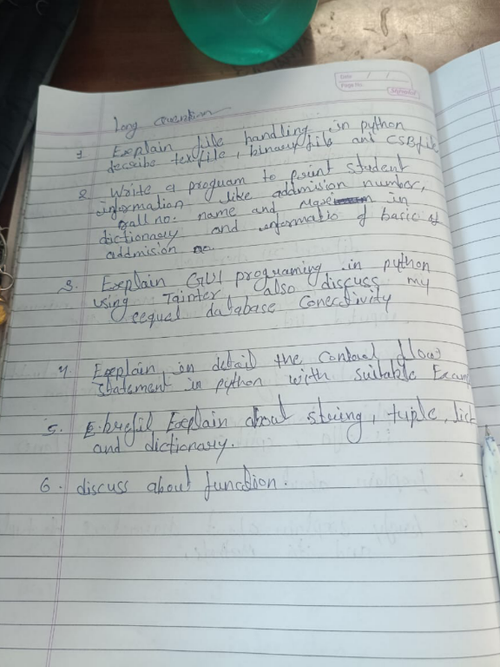 Date / /
Page No.
Long question
1. Explain file handling in python
describe texfile, binary file and CSB file
2. Write a proguam to print student
information like addmision number,
roll no. name and in
dictionary and informatio of basic of
addmision no.
3. Explain GUI programing in python
using Tainter also discuss my
cequal database Conectivity
4. Explain in detail the Control flow
Statement in python with suitable Exam
5. E. brefil Explain about string, tuple, list
and dictionary.
6. discuss about function.